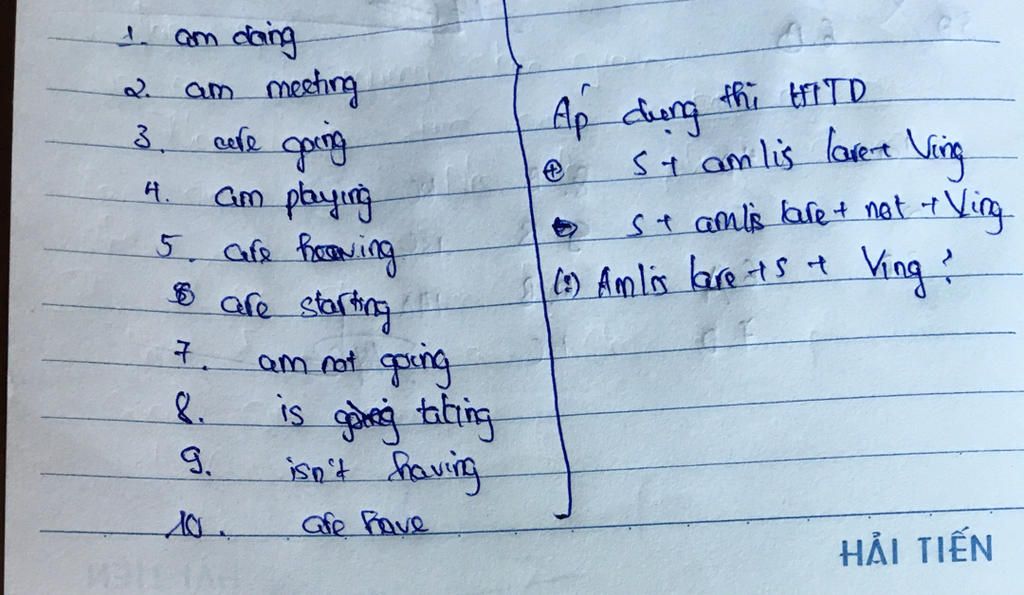 1. am doing
2. am meeting
3. are going
4. am playing
5. are having
6 are starting
7. am not going
8. is going taking
9. isn't having
10. are have
Áp dụng thì HTTD
(+) S + am/is/are + Ving
(-) S + am/is/are + not + Ving
(?) Am/is/are + S + Ving ?
HẢI TIẾN